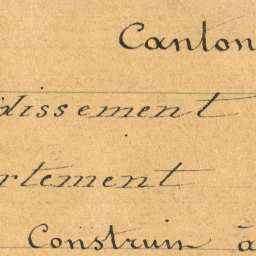 Canton
dissement
rtement
Construire à